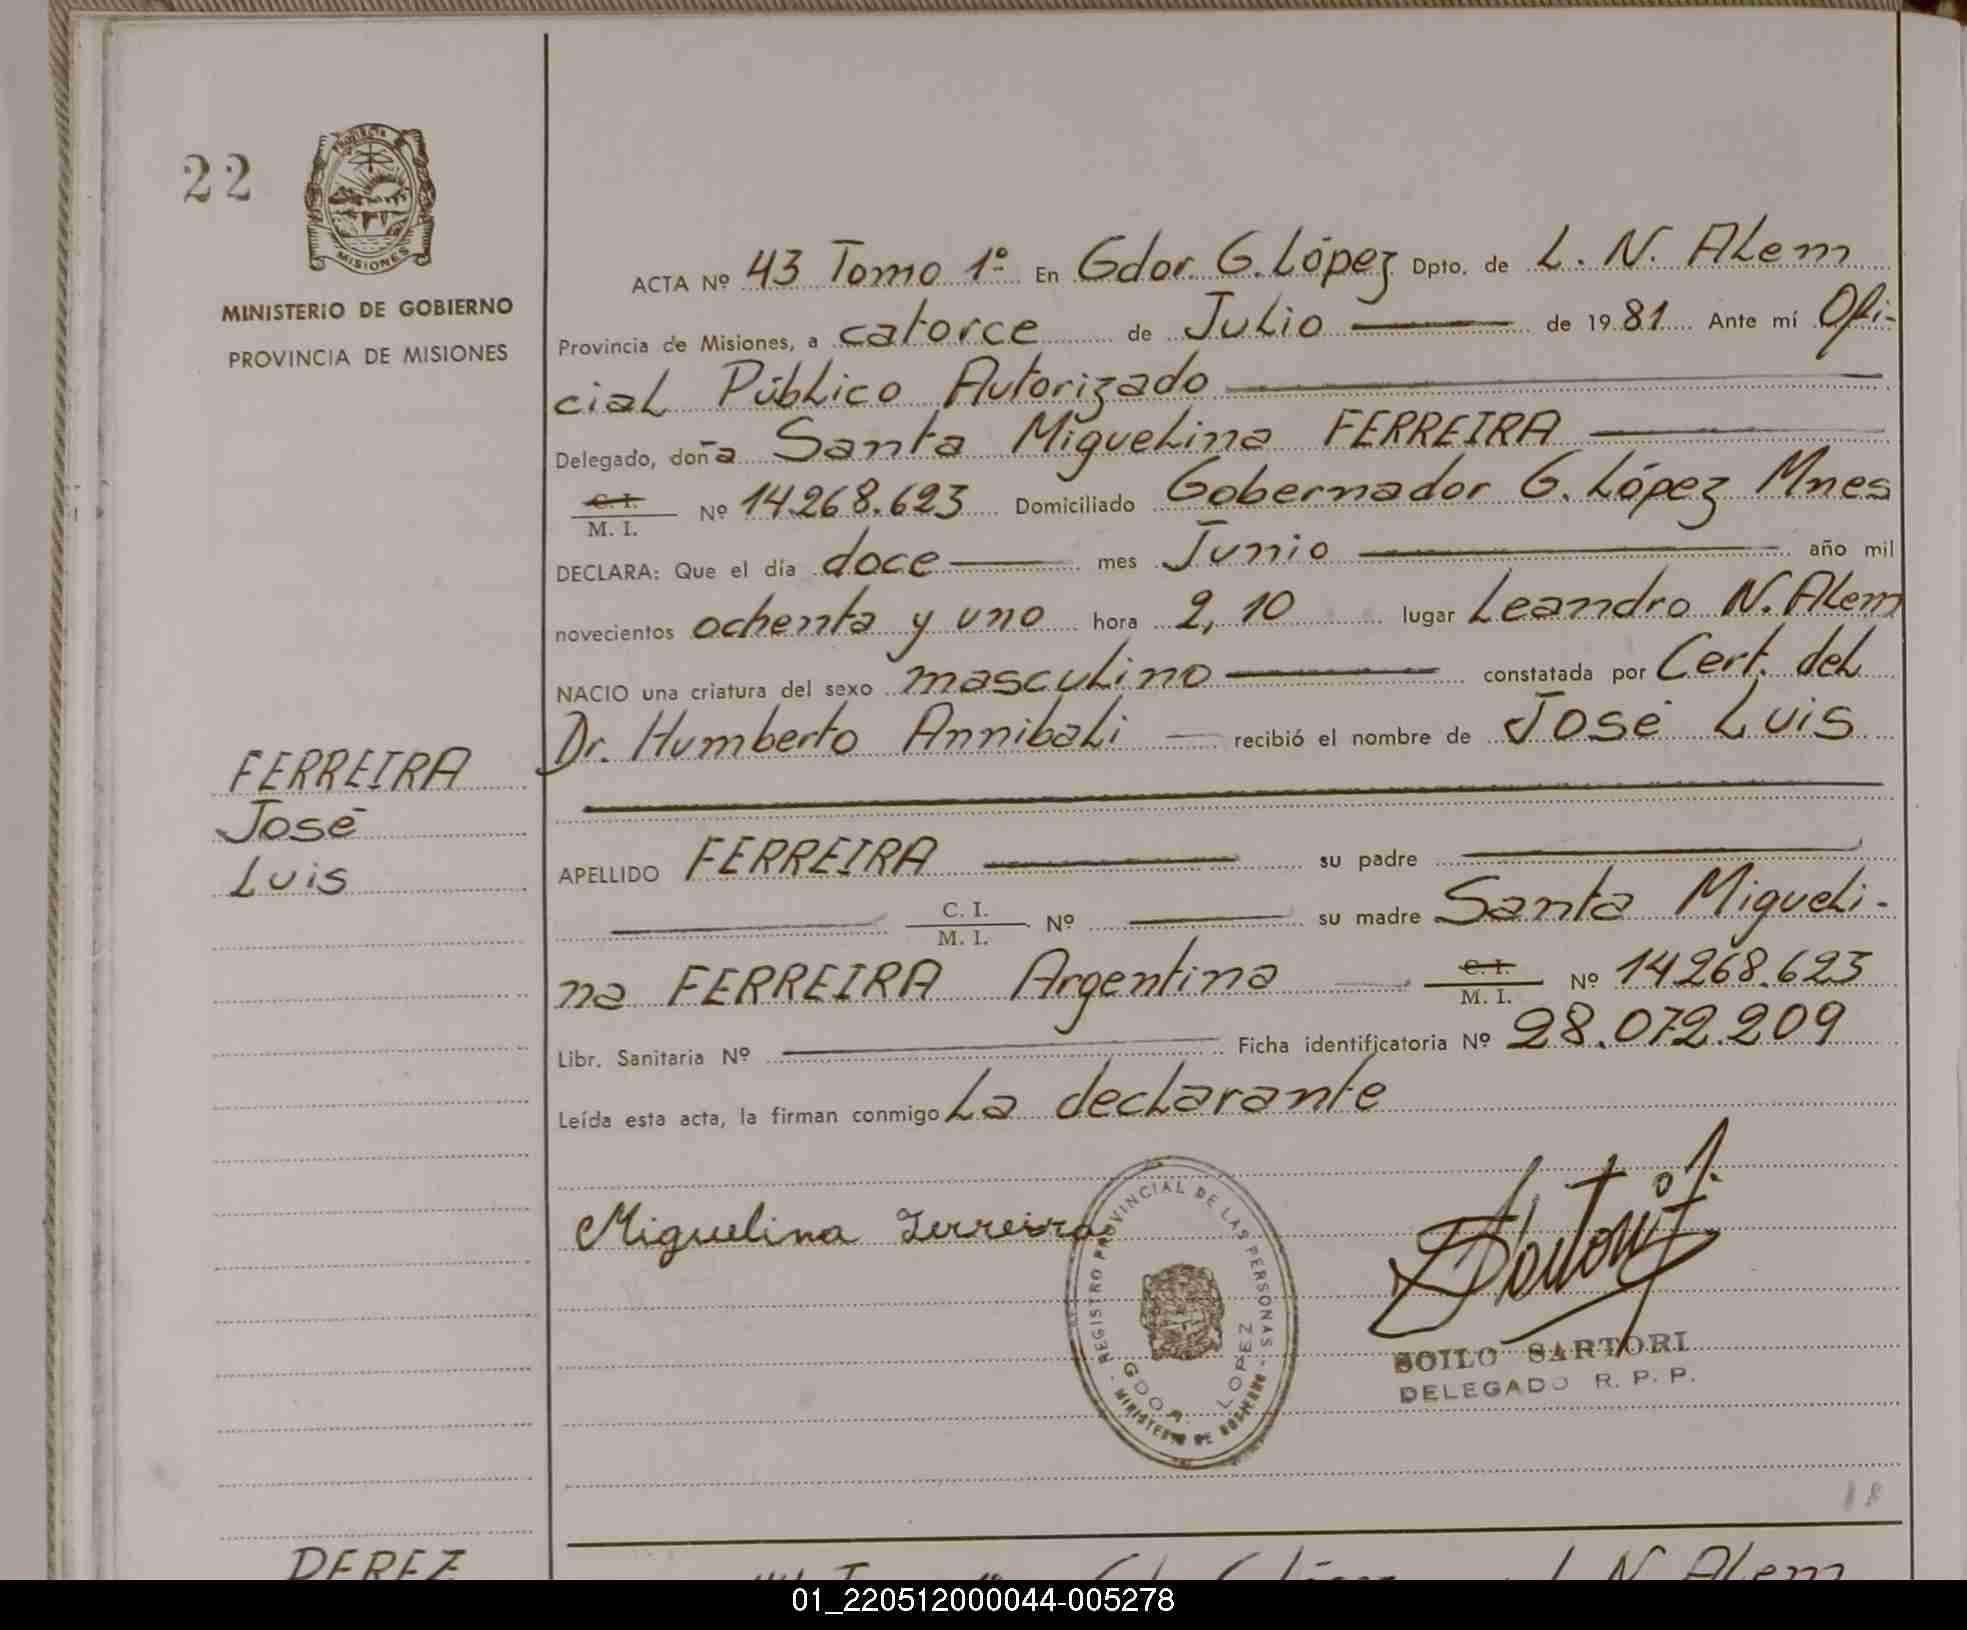 22
PROVINCIA
MISIONES
MINISTERIO DE GOBIERNO
PROVINCIA DE MISIONES
ACTA Nº 43 Tomo 1º En Gdor. G. López Dpto. de L. N. Alem
Provincia de Misiones, a catorce de Julio de 1981 Ante mí Ofi-
cial Público Autorizado
Delegado, doña Santa Miguelina FERREIRA
C. I.
M. I. Nº 14.268.623 Domiciliado Gobernador G. López Mnes
DECLARA: Que el día doce mes Junio año mil
novecientos ochenta y uno hora 2,10 lugar Leandro N. Alem
NACIO una criatura del sexo masculino constatada por Cert. del
Dr. Humberto Annibali recibió el nombre de José Luis
FERREIRA
José
Luis
APELLIDO FERREIRA su padre
C. I.
M. I. Nº su madre Santa Migueli-
na FERREIRA Argentina C. I.
M. I. Nº 14268.623
Libr. Sanitaria Nº Ficha identificatoria Nº 28.072.209
Leída esta acta, la firman conmigo La declarante
Miguelina Ferreira
REGISTRO PROVINCIAL DE LAS PERSONAS
GDOR. LOPEZ
MINISTERIO DE GOBIERNO
SOILO SARTORI
DELEGADO R. P. P.
18
PEREZ
L N. Alem
01_220512000044-005278